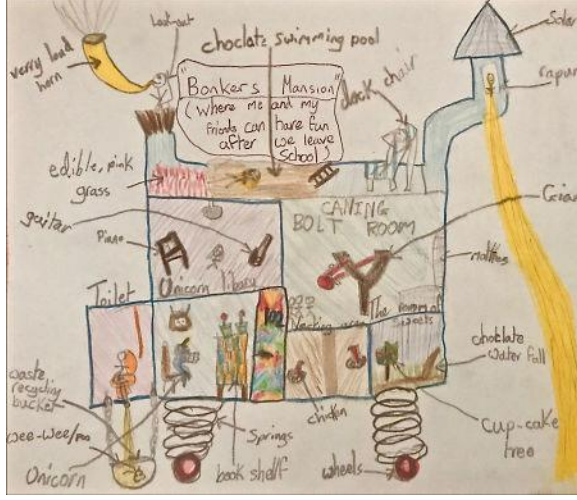 Look-out
choclate swimming pool
Solar
verry loud
horn
"Bonkers Mansion"
(where me and my
friends can have fun
after we leave
school)
dack chair
rapun
edible, pink
grass
guitar
Piano
CANING
BOLT ROOM
Gian
Unicorn libary
Toilet
The
sweets
choclate
water fall
waste
recycling
bucket
wee-wee/poo
Unicorn
Springs
book shelf
chickin
wheels
cup-cake
tree